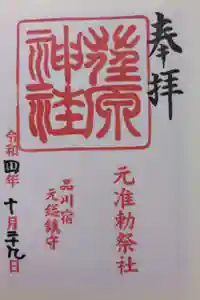 奉拝
荏原
神社
元准勅祭社
品川宿
元総鎮守
令和四年十月二十九日